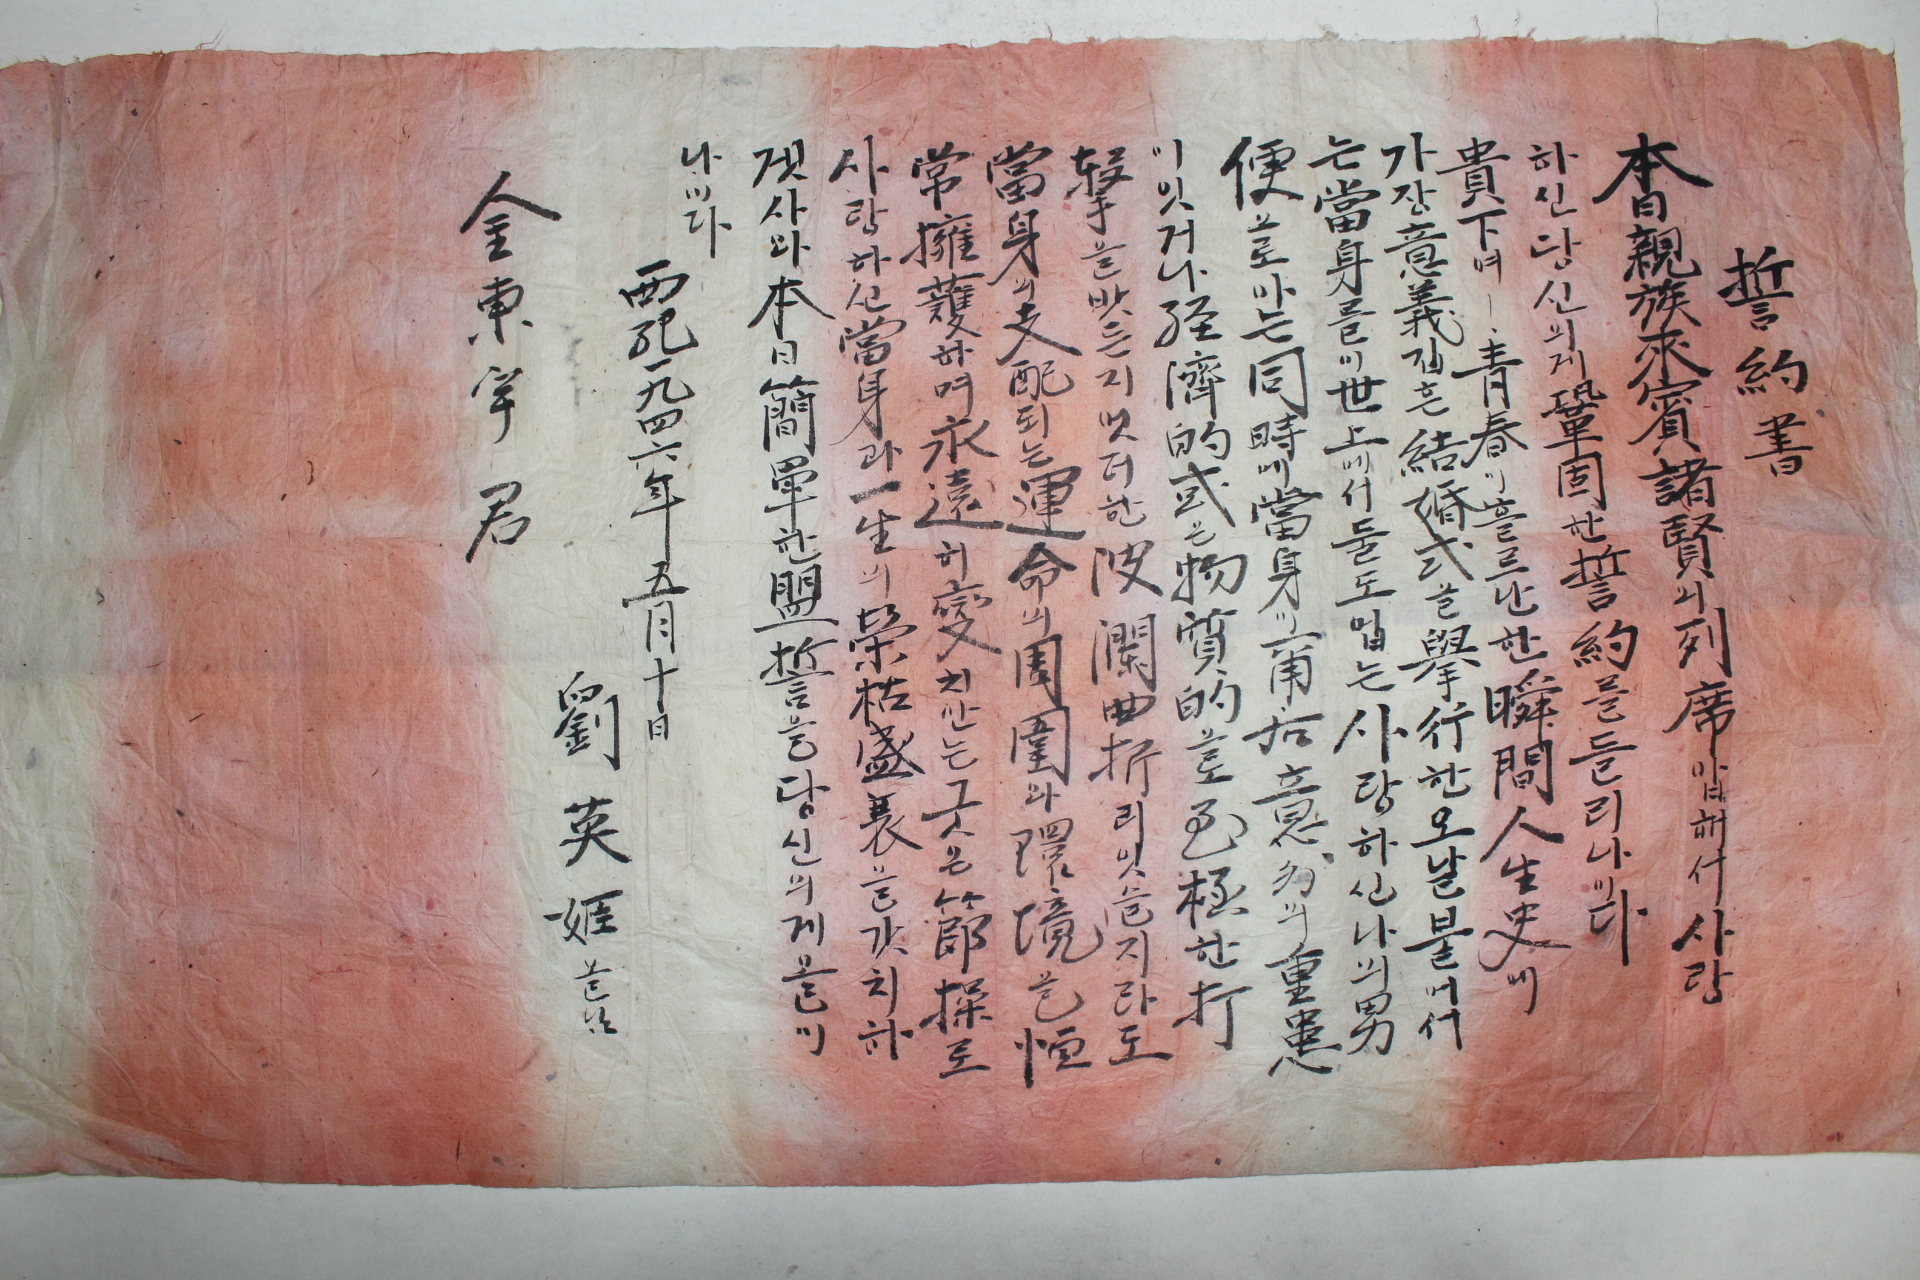 誓約書
本日親族來賓諸賢의列席下압해서사랑
하신당신의게鞏固한誓約을들리나이다
貴下여ㅣ靑春이흘르난한瞬間人生史에
가장意義깁흔結婚式을擧行한오날불어서
는當身를이世上에서둘도업는사랑하신나의男
便으로아는同時에當身이 重患
이잇거나経濟的或은物質的으로至極한打
擊을밧든지엇더한波瀾曲折리잇슬지라도
當身의支配되는運命의周圍와環境을恒
常擁護하며永遠히變치안는구든節操로
사랑하신當身과一生의榮枯盛衰을갓치하
겟사와本日簡單한盟誓을당신의게올이
나이다
西紀一九四六年五月十日
劉英姬
金東宇君